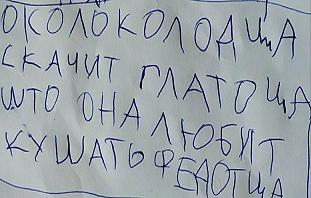 ОКОЛОКОЛОДЦА
СКАЧИТ ГЛАТОЩА
ШТО ОНА ЛЮБИТ
КУШАТЬ ФЕДОТЩА